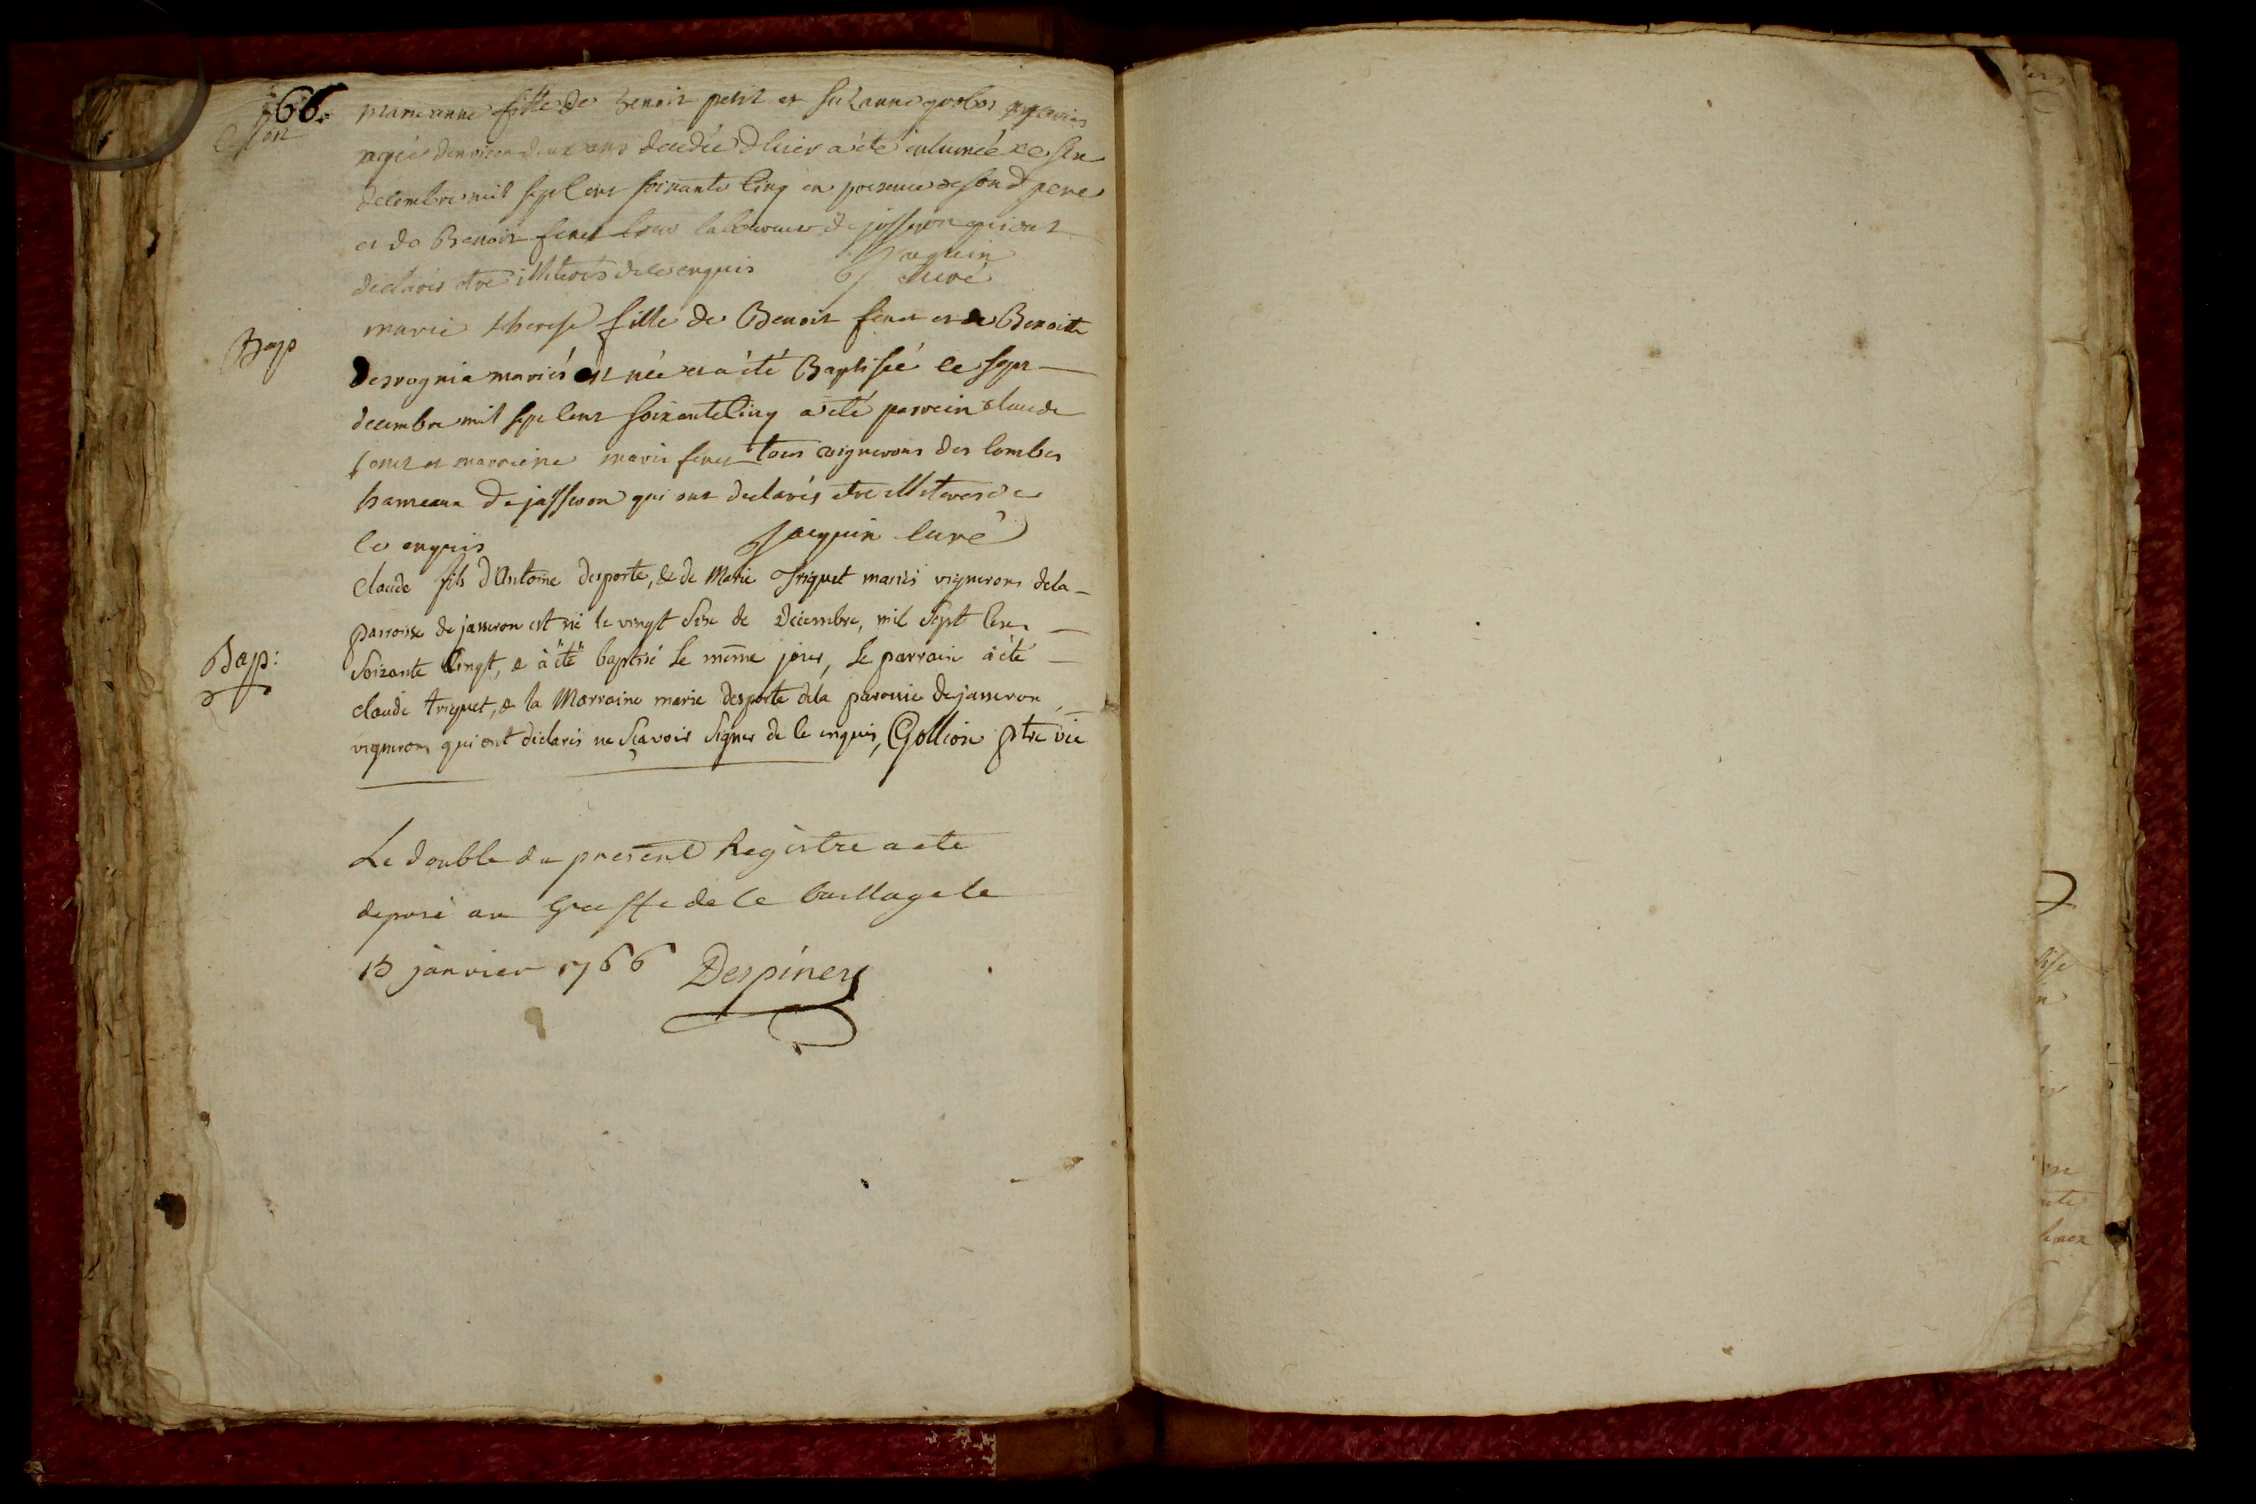 66.
marie anne fille de Benoit petit et Suzanne
agée d'environ deux ans decedée d'hier a été inhumée le six
decembre mil sept cent soixante cinq en presence de son d. pere
et de Benoit feret tous laboureurs de jasseron qui ont
declarés etre illiterés de ce enquis Jacquin curé
Bap
marie therese fille de Benoit feret et de Benoite
Desvognia mariés est née et a été Baptisée le sept
decembre mil sept cent soixante cinq a été parrein claude
feret et marreine marie feret tous vignerons des combes
hameaux de jasseron qui ont declarés etre illiterés de
ce enquis Jacquin curé
Bap:
claude fils d'Antoine desporte, & de Marie Triquet mariés vignerons dela
parroisse de jasseron est né le vingt sixe de Décembre, mil sept cent
soixante cingt, & à été baptisé le même jour, le parrain à été
claude triquet, & la Marraine marie desporte dela paroisse de jasseron,
vignerons qui ont déclarés ne sçavoir signer de ce enquis, Gollion ptre vic
Le double du present Registre a ete
deposé au Greffe de ce bailliage le
13 janvier 1766 Despiney